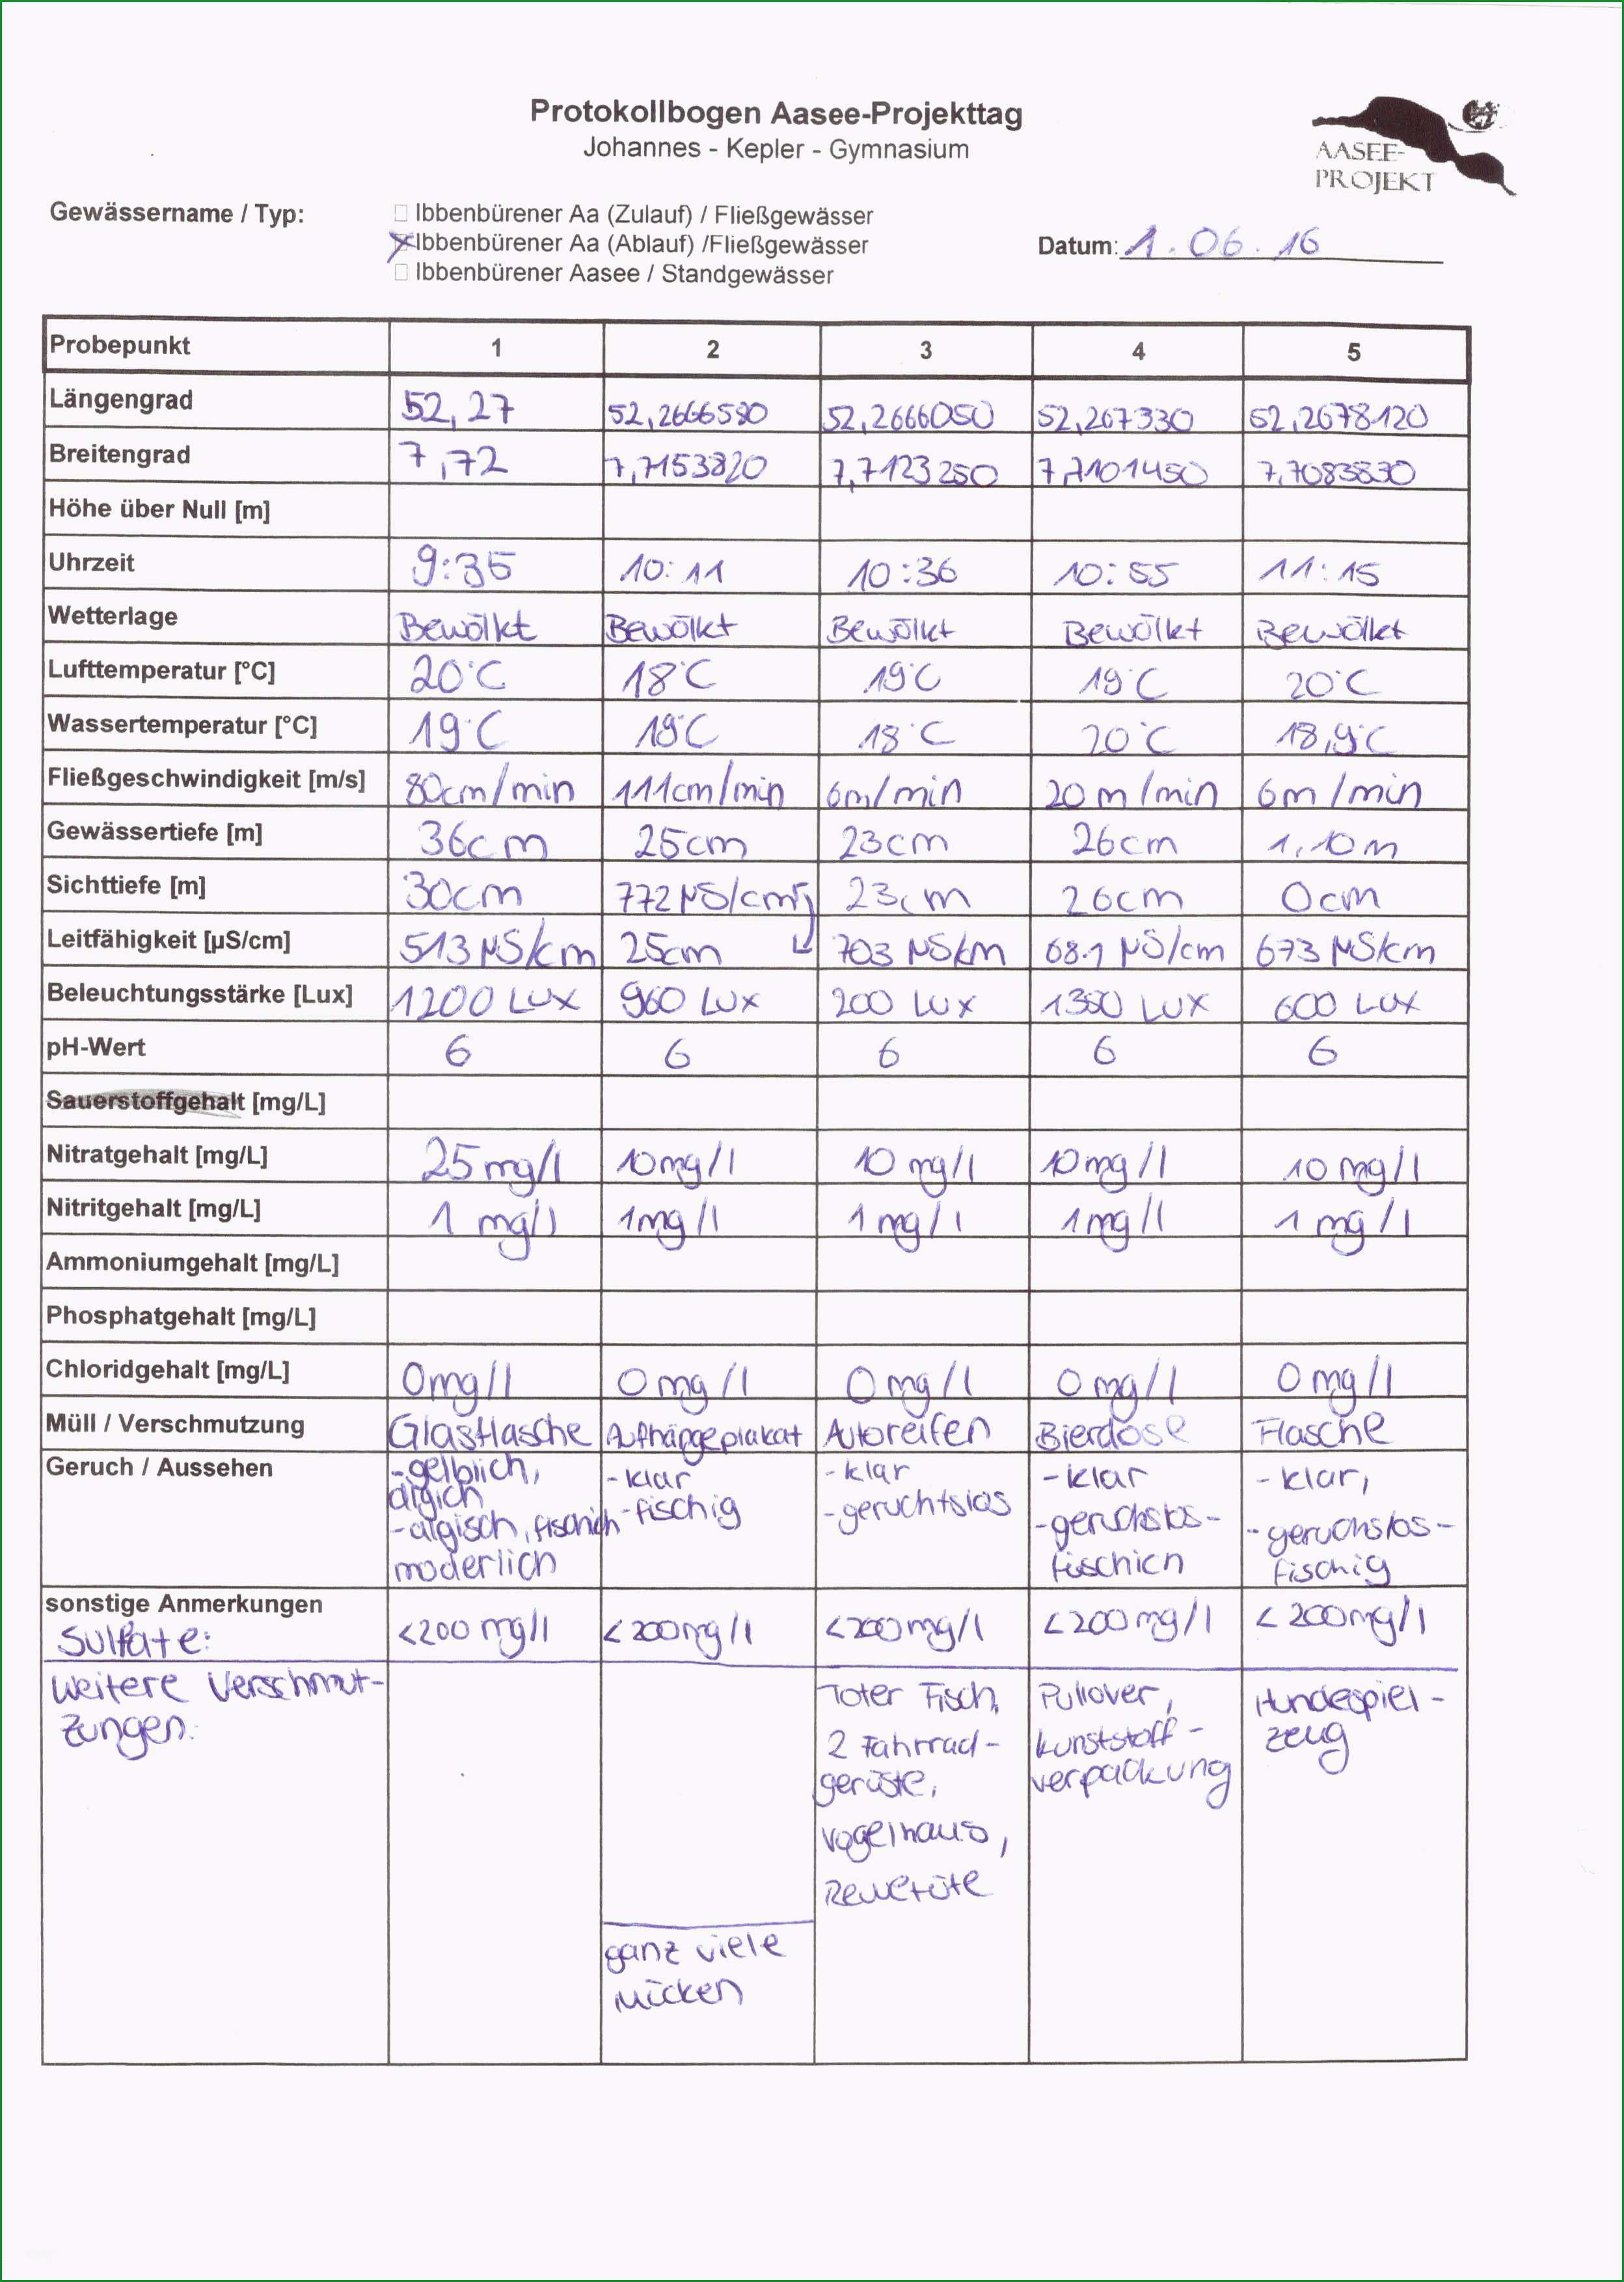 Protokollbogen Aasee-Projekttag
Johannes - Kepler - Gymnasium
AASEE-
PROJEKT
Gewässername / Typ:
Ibbenbürener Aa (Zulauf) / Fließgewässer
Ibbenbürener Aa (Ablauf) /Fließgewässer
Ibbenbürener Aasee / Standgewässer
Datum: 1.06.16
Probepunkt 1 2 3 4 5
Längengrad 52,27 52,2666580 52,2666050 52,267330 52,2678120
Breitengrad 7,72 7,7153820 7,7123250 7,7101450 7,7083830
Höhe über Null [m]
Uhrzeit 9:35 10:11 10:36 10:55 11:15
Wetterlage Bewölkt Bewölkt Bewölkt Bewölkt Bewölkt
Lufttemperatur [°C] 20°C 18°C 19°C 19°C 20°C
Wassertemperatur [°C] 19°C 18°C 18°C 20°C 18,9°C
Fließgeschwindigkeit [m/s] 80cm/min 111cm/min 6m/min 20m/min 6m/min
Gewässertiefe [m] 36cm 25cm 23cm 26cm 1,10m
Sichttiefe [m] 30cm 772 µS/cm 23cm 26cm 0cm
Leitfähigkeit [µS/cm] 513 µS/cm 25cm 703 µS/cm 681 µS/cm 673 µS/cm
Beleuchtungsstärke [Lux] 1200 Lux 960 Lux 200 Lux 1300 Lux 600 Lux
pH-Wert 6 6 6 6 6
Sauerstoffgehalt [mg/L]
Nitratgehalt [mg/L] 25mg/l 10mg/l 10 mg/l 10mg/l 10 mg/l
Nitritgehalt [mg/L] 1 mg/l 1mg/l 1 mg/l 1mg/l 1 mg/l
Ammoniumgehalt [mg/L]
Phosphatgehalt [mg/L]
Chloridgehalt [mg/L] 0mg/l 0 mg/l 0 mg/l 0 mg/l 0 mg/l
Müll / Verschmutzung Glasflasche Aufhängeplakat Autoreifen Bierdose Flasche
Geruch / Aussehen
-gelblich,
algich
-algisch, fischich
moderlich
-klar
-fischig
-klar
-geruchtslos
-klar
-geruchslos-
fischich
-klar,
-geruchslos-
fischig
sonstige Anmerkungen
Sulfate: <200 mg/l <200mg/l <200mg/l <200mg/l <200mg/l
Weitere Verschmut-
zungen:
ganz viele
Mücken
Toter Fisch,
2 Fahrrad-
gerüste,
Vogelhaus,
Rewetüte
Pullover,
Kunststoff-
verpackung
Hundespiel-
zeug